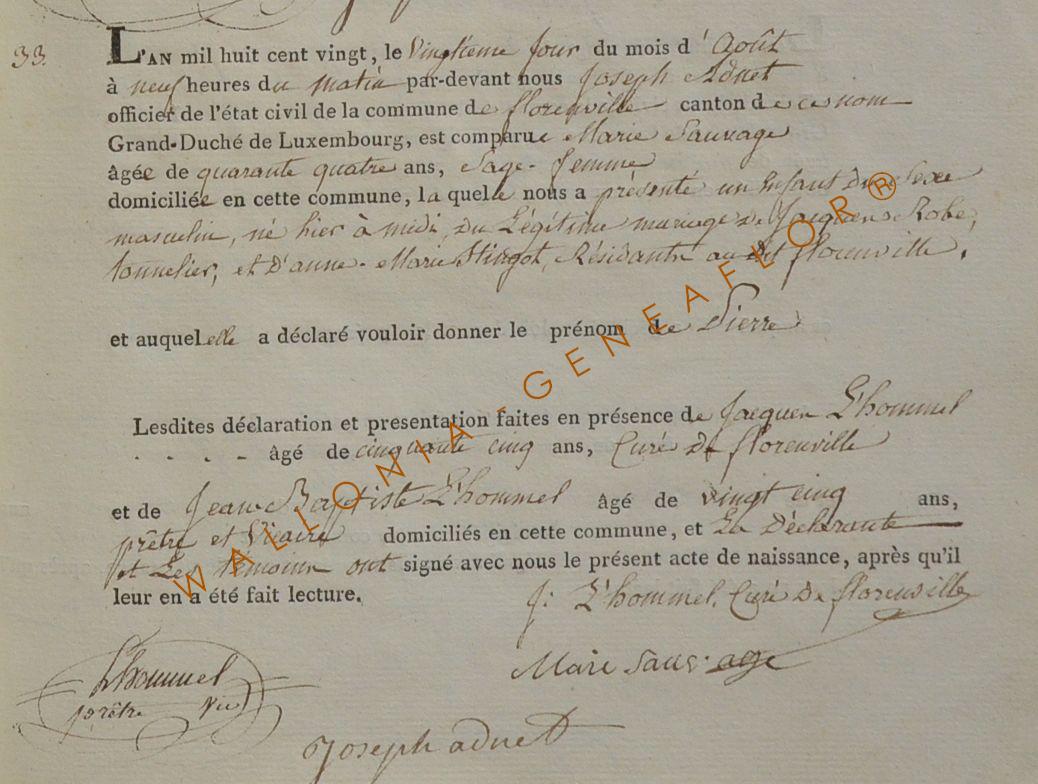 33.
L'AN mil huit cent vingt, le Vingtieme Jour du mois d' Août
à neuf heures du matin par-devant nous Joseph Adnet
officier de l'état civil de la commune de florenville canton de ce nom
Grand-Duché de Luxembourg, est comparue Marie Sauvage
âgée de quarante quatre ans, Sage-femme
domiciliée en cette commune, la quele nous a présenté un Enfant du Sexe
masculin, né hier à midi, du Légitime mariage de Jacques Robe,
tonnelier, et D'anne-Marie Stingot, Résidants au dit florenville.
et auquel elle a déclaré vouloir donner le prénom de Pierre
Lesdites déclaration et presentation faites en présence de Jacques L'hommel
. . . . âgé de cinquante cinq ans, Curé de florenville
et de Jean Baptiste L'hommel âgé de vingt cinq ans,
prêtre et Vicaire domiciliés en cette commune, et La Déclarante
et Les témoins ont signé avec nous le présent acte de naissance, après qu'il
leur en a été fait lecture.
J: L'hommel. Curé De florenville
Marie sauvage
Lhommel
prêtre Vic
Joseph adnet
WALLONIA-GENEAFLOR®